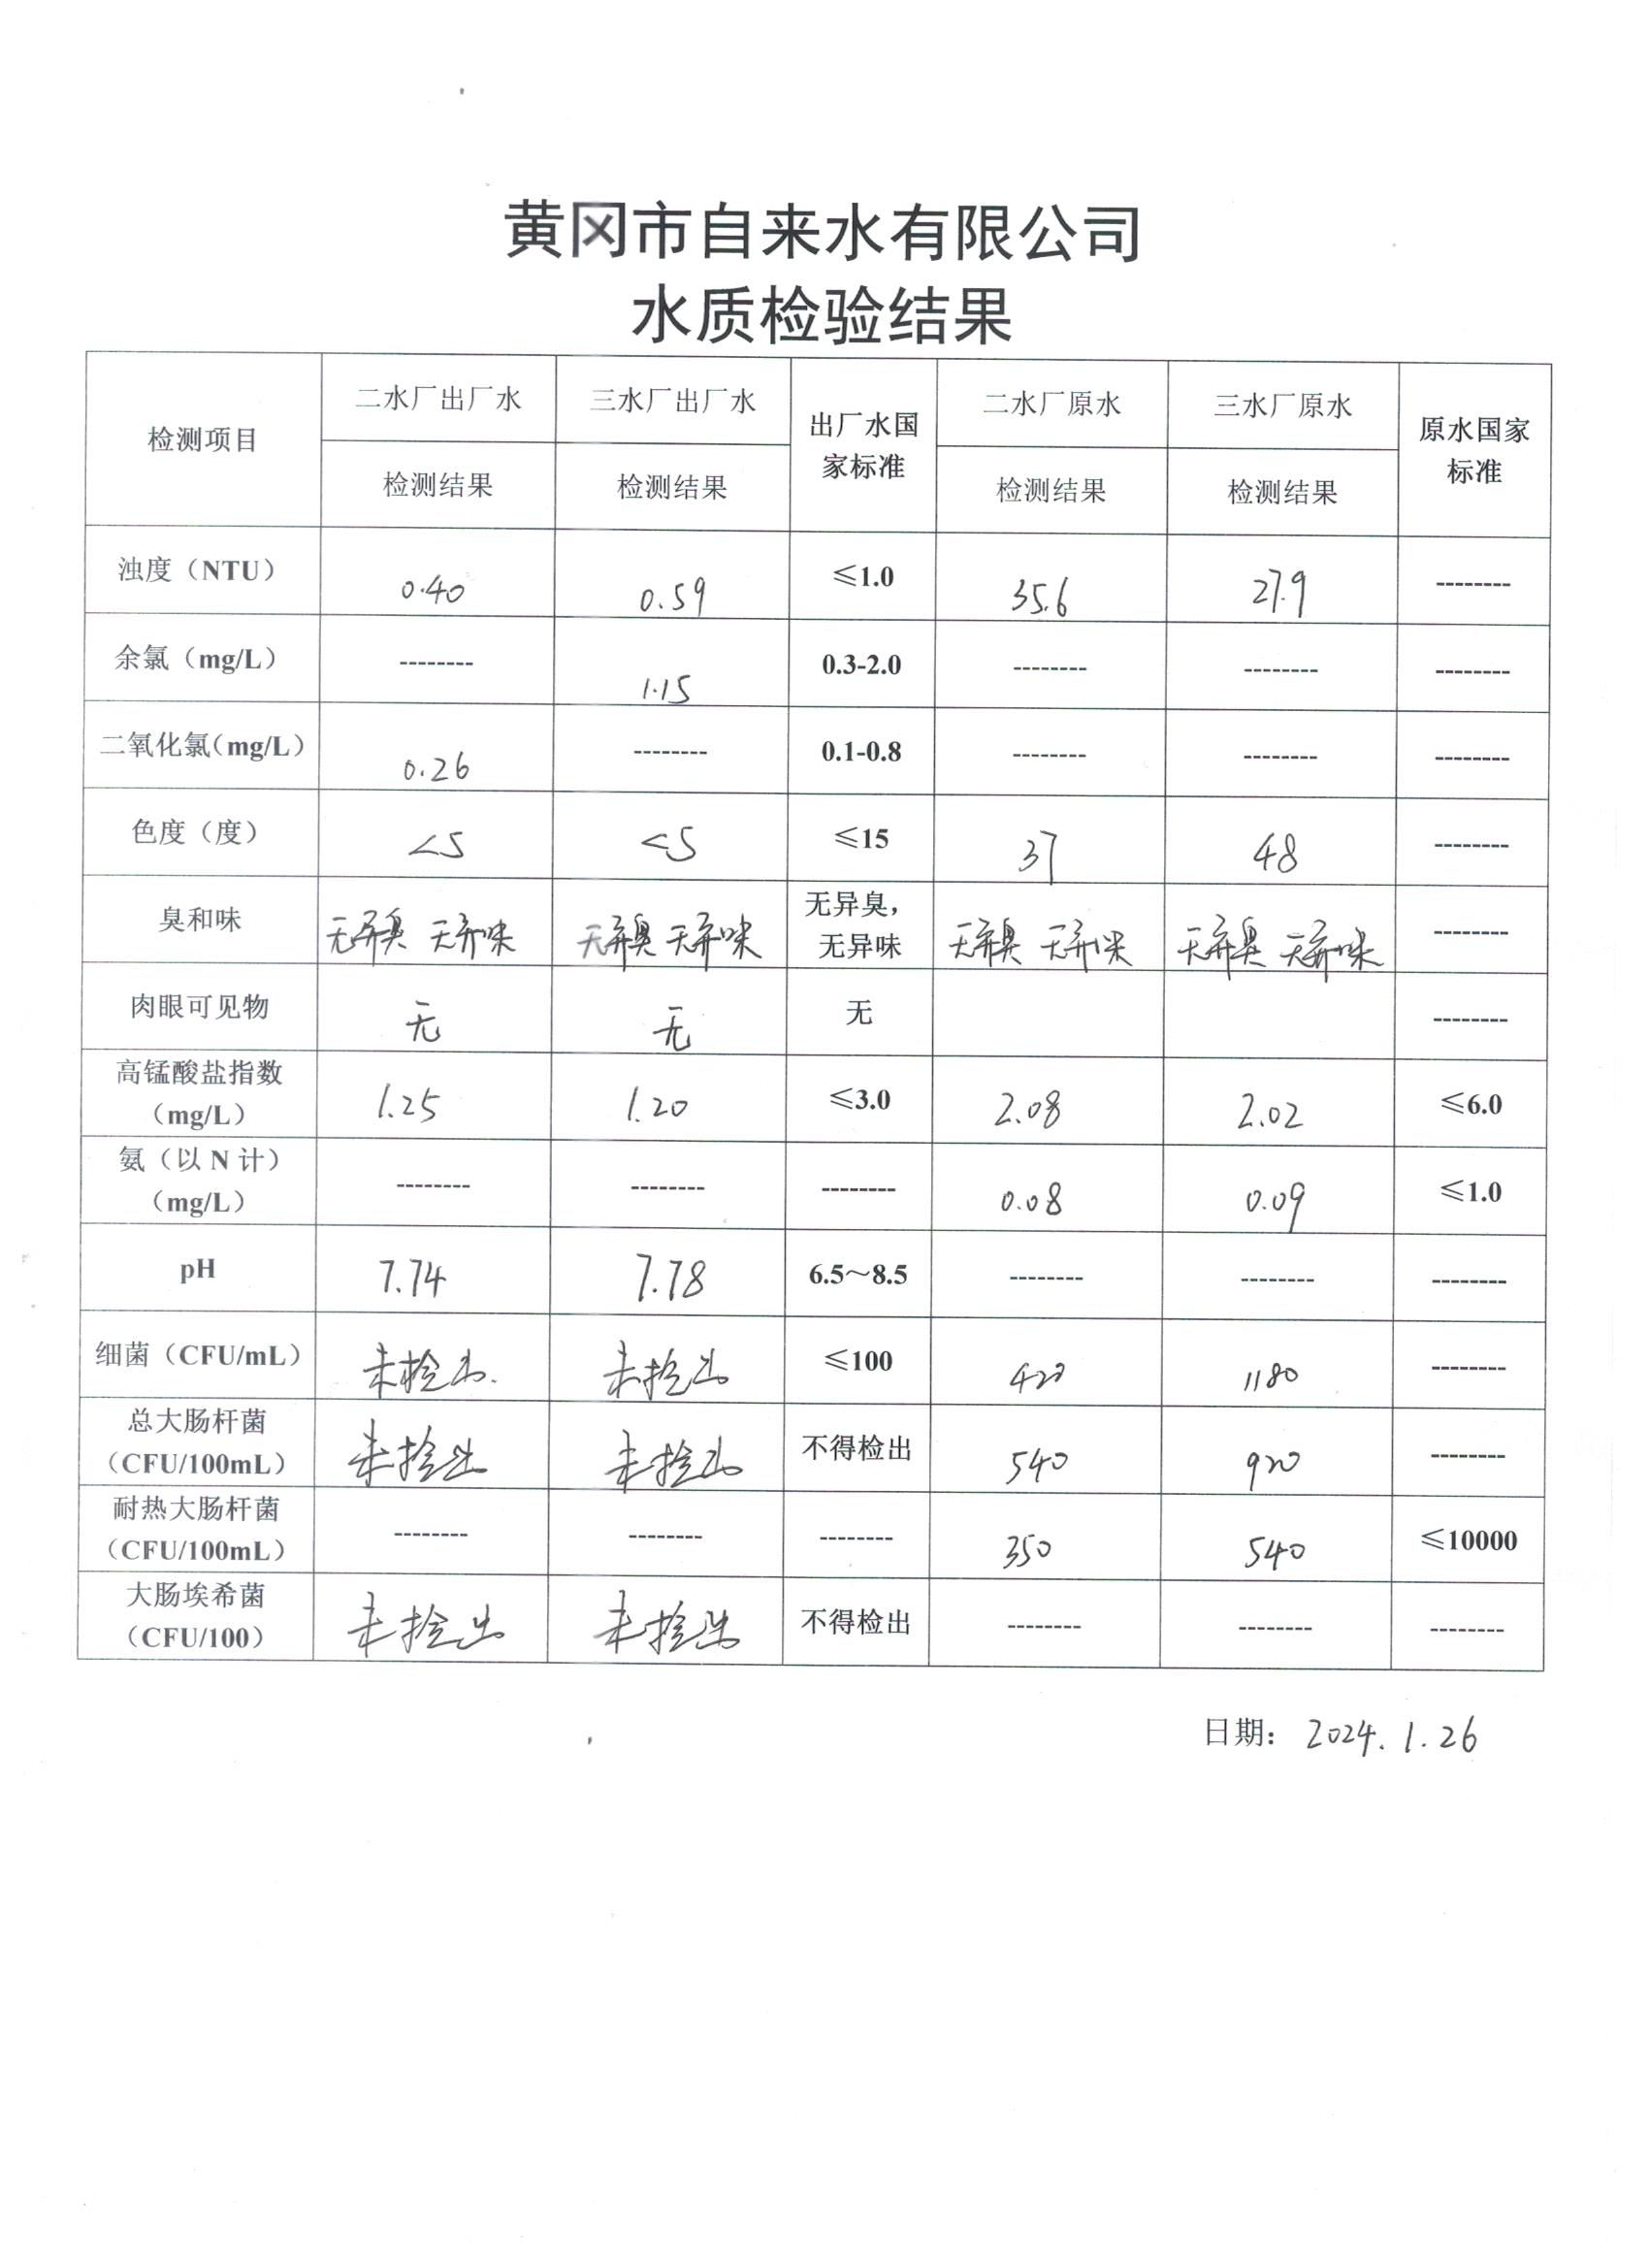 黄冈市自来水有限公司
水质检验结果
检测项目 二水厂出厂水 三水厂出厂水 出厂水国家标准 二水厂原水 三水厂原水 原水国家标准
检测结果 检测结果 检测结果 检测结果
浊度（NTU） 0.40 0.59 ≤1.0 35.6 27.9 --------
余氯（mg/L） -------- 1.15 0.3-2.0 -------- -------- --------
二氧化氯（mg/L） 0.26 -------- 0.1-0.8 -------- -------- --------
色度（度） <5 <5 ≤15 37 48 --------
臭和味 无异臭 无异味 无异臭 无异味 无异臭，无异味 无异臭 无异味 无异臭 无异味 --------
肉眼可见物 无 无 无 --------
高锰酸盐指数（mg/L） 1.25 1.20 ≤3.0 2.08 2.02 ≤6.0
氨（以 N 计）（mg/L） -------- -------- -------- 0.08 0.09 ≤1.0
pH 7.74 7.78 6.5～8.5 -------- -------- --------
细菌（CFU/mL） 未检出. 未检出 ≤100 420 1180 --------
总大肠杆菌（CFU/100mL） 未检出 未检出 不得检出 540 920 --------
耐热大肠杆菌（CFU/100mL） -------- -------- -------- 350 540 ≤10000
大肠埃希菌（CFU/100） 未检出 未检出 不得检出 -------- -------- --------
日期： 2024.1.26